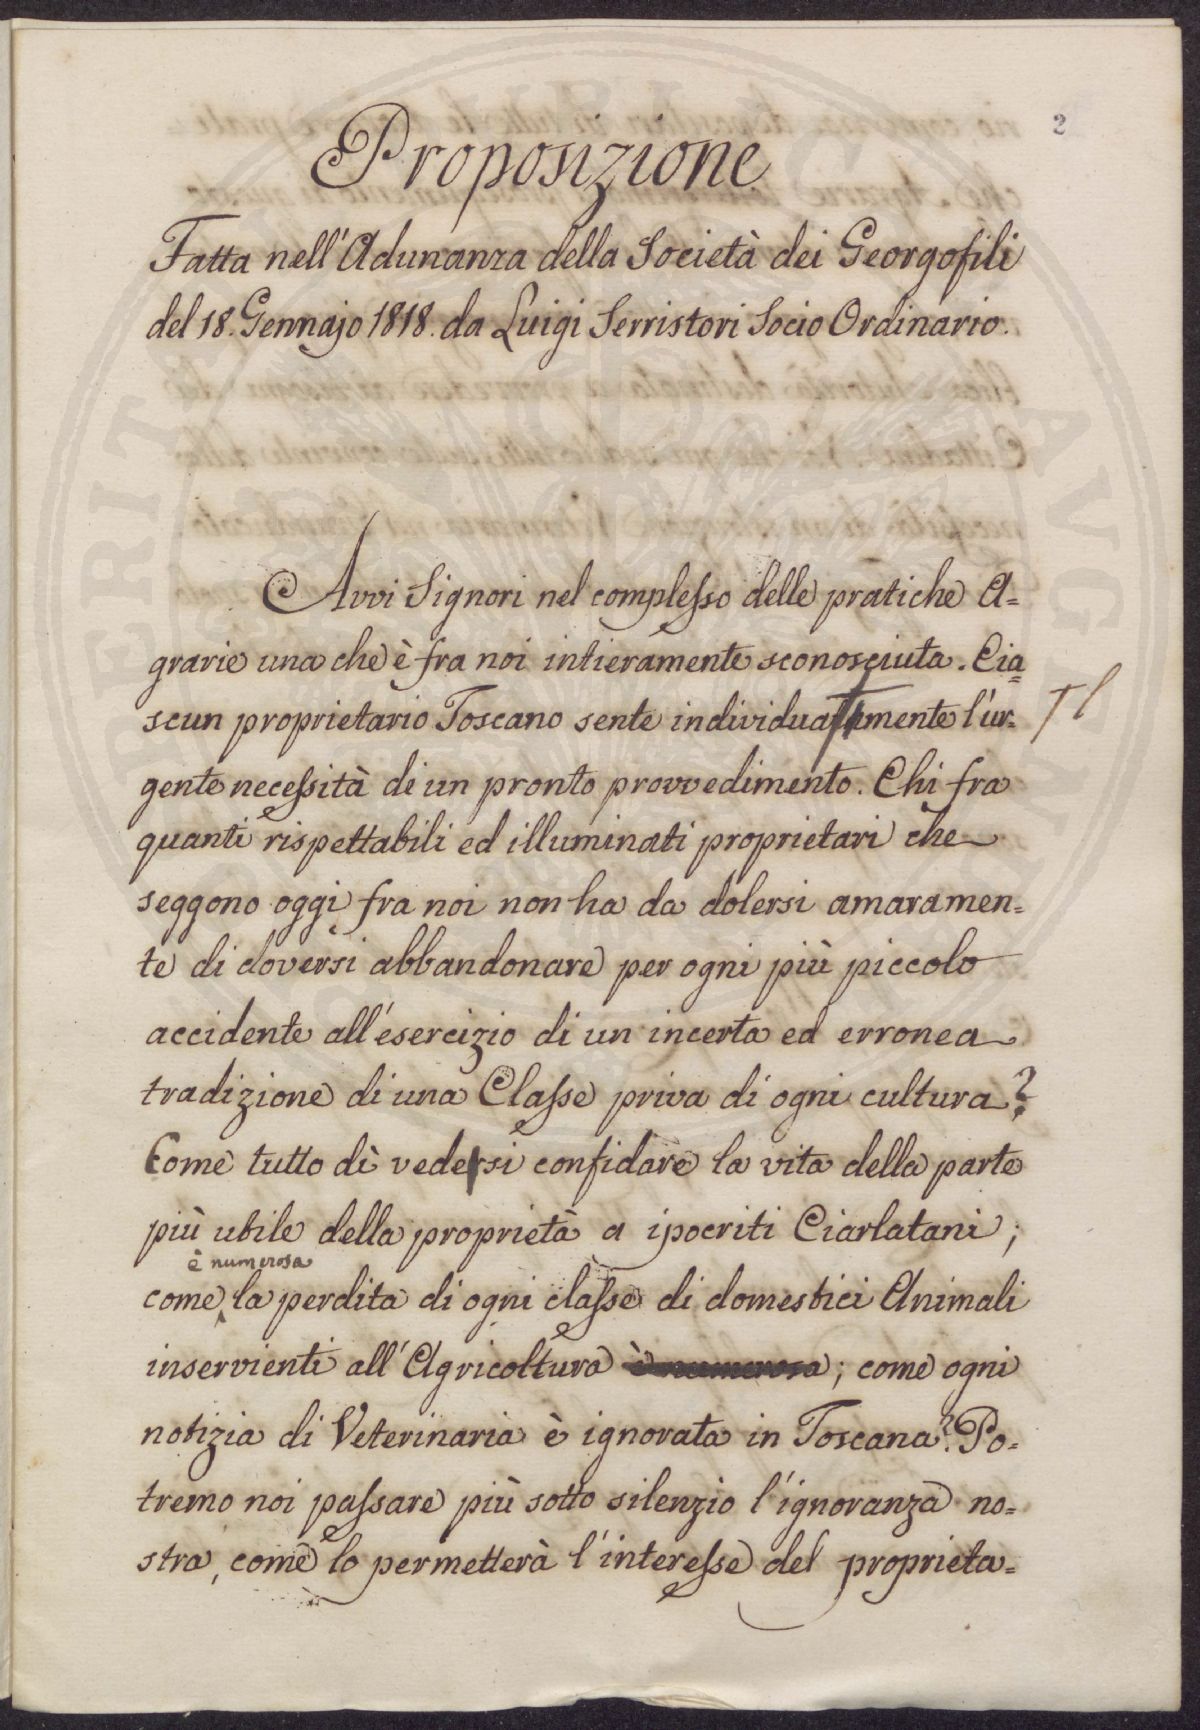 2
Proposizione
Fatta nell'Adunanza della Società dei Georgofili
del 18. Gennajo 1818. da Luigi Serristori Socio Ordinario.
Avvi Signori nel complesso delle pratiche A=
grarie una che è fra noi intieramente sconosciuta. Cia=
scun proprietario Toscano sente individualmente l'ur=
l
gente necessità di un pronto provvedimento. Chi fra
quanti rispettabili ed illuminati proprietari che
seggono oggi fra noi non ha da dolersi amaramen=
te di doversi abbandonare per ogni più piccolo
accidente all'esercizio di un incerta ed erronea
tradizione di una Classe priva di ogni cultura?
Come tutto dì vedersi confidare la vita della parte
più utile della proprietà a ipocriti Ciarlatani;
è numerosa
come la perdita di ogni classe di domestici Animali
inservienti all'Agricoltura è numerosa; come ogni
notizia di Veterinaria è ignorata in Toscana? Po=
tremo noi passare più sotto silenzio l'ignoranza no=
stra, come lo permetterà l'interesse del proprieta=